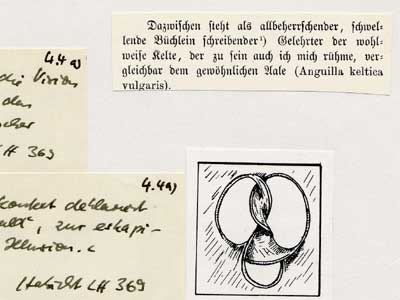 Dazwischen steht als allbeherrschender, schwel-
lende Büchlein schreibender¹) Gelehrter der wohl-
weise Kelte, der zu sein auch ich mich rühme, ver-
gleichbar dem gewöhnlichen Aale (Anguilla keltica
vulgaris).
4.4 a)
die Vision
LH 369
4.4a)
konkret deklariert
zur eskapi-
Illusion.
LH 369